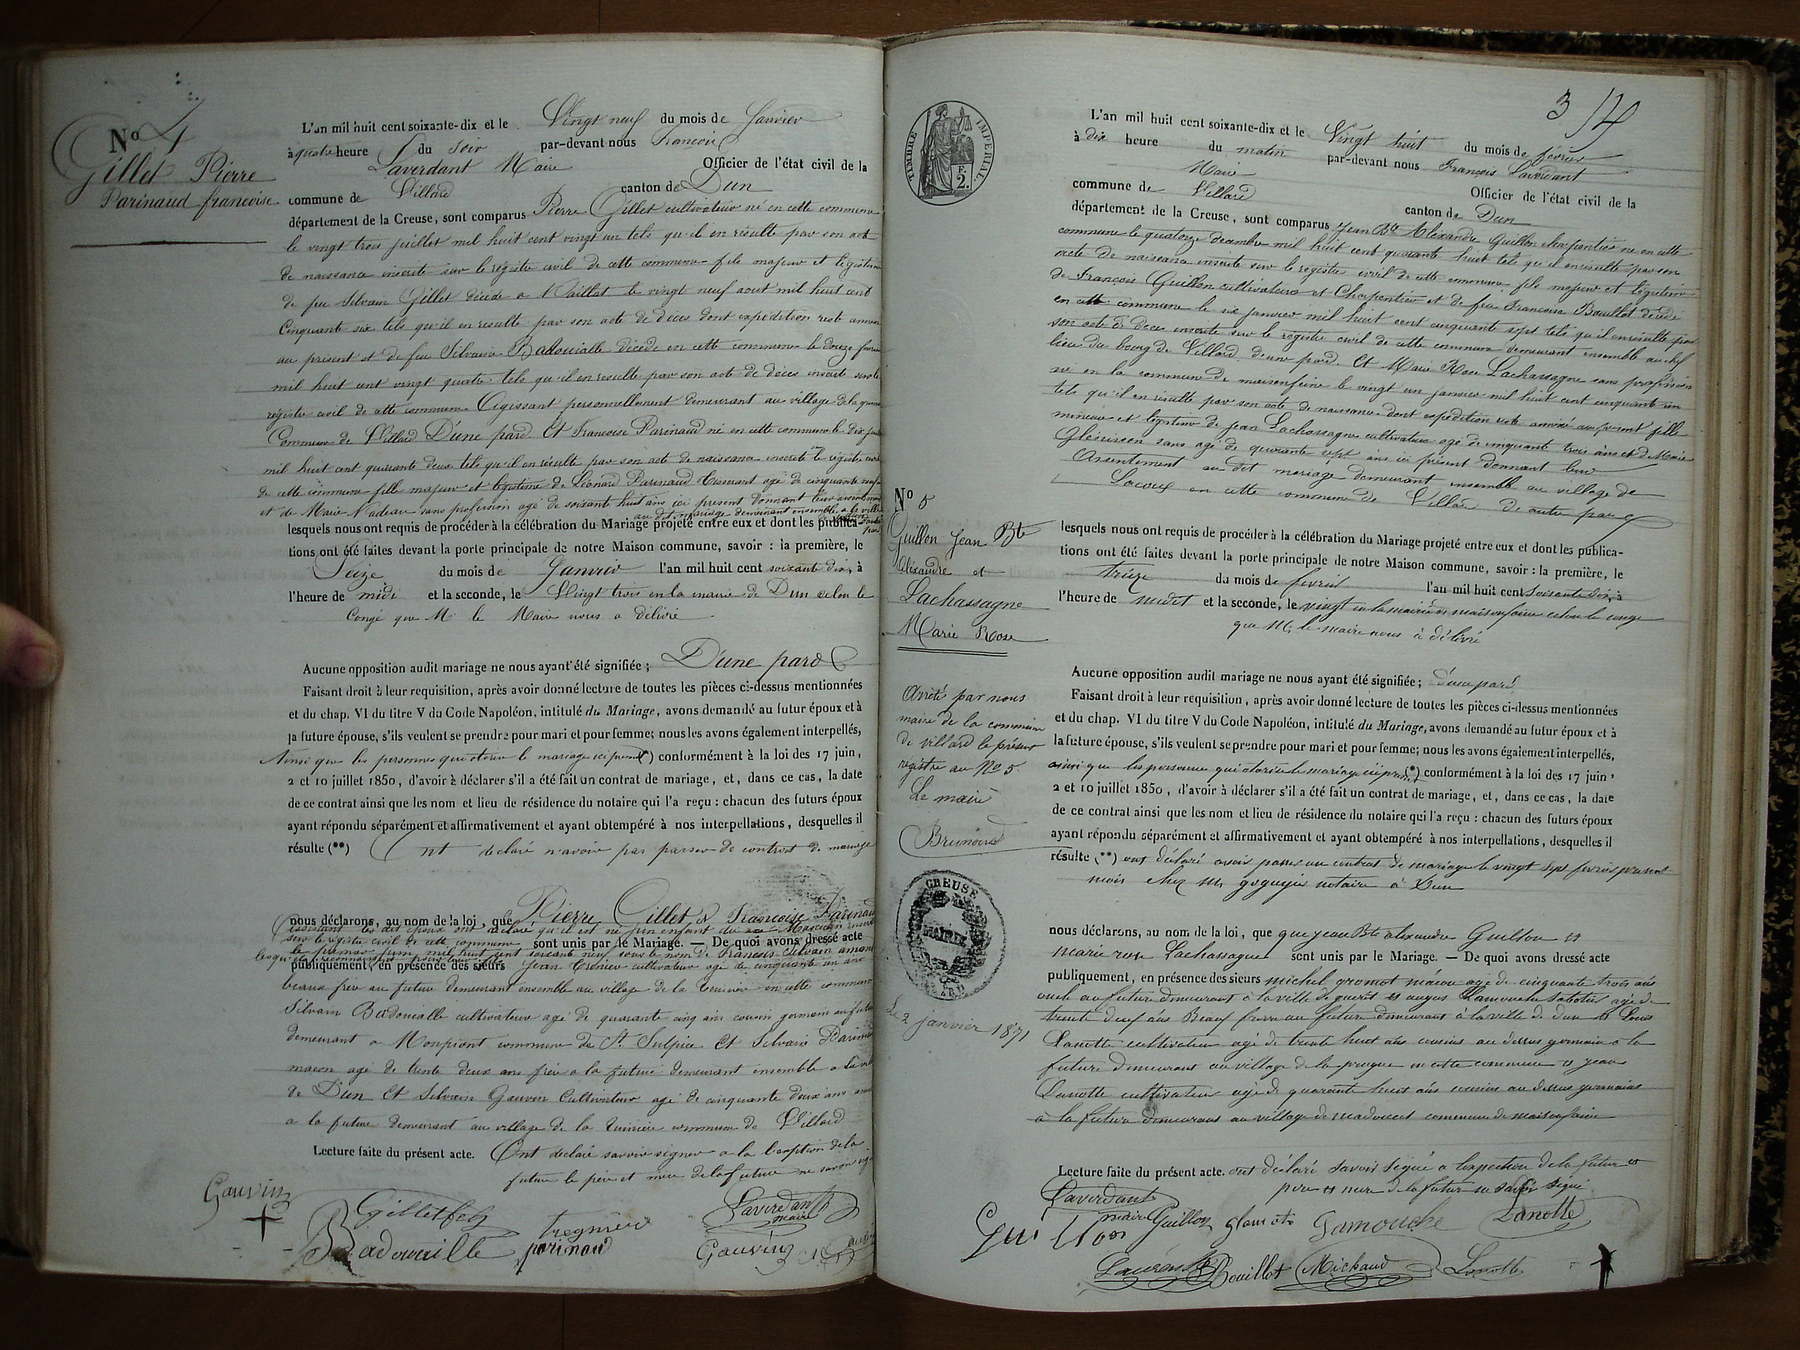 No 4
Gillet Pierre
Parinaud francoise
L'an mil huit cent soixante-dix et le Vingt neuf du mois de Janvier
à quatre heure du Soir par-devant nous Francois
Laverdant Maire Officier de l'état civil de la
commune de Villard canton de Dun
département de la Creuse, sont comparus Pierre Gillet cultivateur né en cette commune
le vingt trois juillet mil huit cent vingt un tels qu'il en résulte par son acte
de naissance inscrite sur le registre civil de cette commune fils majeur et légitime
de feu Silvain Gillet décédé a Naillat le vingt neuf aout mil huit cent
Cinquante six tels qu'il en resulte par son acte de décès dont expédition reste annexé
au présent et de feu Silvaine Badouialle décédé en cette commune le douze
mil huit cent vingt quatre tels qu'il en resulte par son acte de décès inscrite sur le
registre civil de cette commune Agissant personnellement demeurant au village de la
Commune de Villard D'une pard. Et Francoise Parinaud né en cette commune le dix
mil huit cent quarante deux tels qu'il en résulte par son acte de naissance inscrite le registre civil
de cette commune fille majeur et légitime de Léonard Parinaud agé de cinquante
et de Marie Nadeau sans profession agé de soixante huit ans ici présent donnant leur
au dit mariage demeurant ensemble a la ville
lesquels nous ont requis de procéder à la célébration du Mariage projeté entre eux et dont les publica-
tions ont été faites devant la porte principale de notre Maison commune, savoir : la première, le
Seize du mois de Janvier l'an mil huit cent soixante dix, à
l'heure de midi et la seconde, le Vingt trois en la mairie de Dun selon le
Congé que M le Maire nous a délivré
Aucune opposition audit mariage ne nous ayant été signifiée ; D'une pard
Faisant droit à leur requisition, après avoir donné lecture de toutes les pièces ci-dessus mentionnées
et du chap. VI du titre V du Code Napoléon, intitulé du Mariage, avons demandé au futur époux et à
la future épouse, s'ils veulent se prendre pour mari et pour femme; nous les avons également interpellés,
Ainsi que les personnes qui otorise le mariage ici present (*) conformément à la loi des 17 juin,
2 et 10 juillet 1850, d'avoir à déclarer s'il a été fait un contrat de mariage, et, dans ce cas, la date
de ce contrat ainsi que les nom et lieu de résidence du notaire qui l'a reçu : chacun des futurs époux
ayant répondu séparément et affirmativement et ayant obtempéré à nos interpellations, desquelles il
résulte (**) Ont déclaré n'avoir pas passer de contrat de mariage
nous déclarons, au nom de la loi, que Pierre Gillet & Francoise Parinaud
les dit époux ont déclaré qu'il est né un enfant du Masculin inscrit
sur le registre civil de cette commune sont unis par le Mariage. — De quoi avons dressé acte
le premier juin mil huit cent soixante neuf sous le nom de Francois Silvain
publiquement, en présence des sieurs Jean cultivateur agé de cinquante un ans
beaux frère au future demeurant ensemble au village de la en cette commune
Silvain Badouialle cultivateur agé de quarante cinq ans cousin germain au futur
demeurant a Monpiont commune de St Sulpice Et Silvain Parinaud
macon agé de trente deux ans frère a la future demeurant ensemble a la
de Dun Et Silvain Gauvin Cultivateur agé de cinquante deux ans
a la future demeurant au village de la commune de Villard
Lecture faite du présent acte. Ont déclaré savoir signer a la de la
future le père et mère de la future ne savoir
Gauvin
Gillet fils
Laverdant
maire
Badouialle
parinaud
Gauvin
3
TIMBRE IMPERIAL
F.
2.
L'an mil huit cent soixante-dix et le Vingt huit du mois de février
à dix heure du matin par-devant nous François Laverdant
Maire Officier de l'état civil de la
commune de Villard canton de Dun
département de la Creuse, sont comparus Jean Bte Alexandre Guillon charpentier né en cette
commune le quatorze décembre mil huit cent quarante huit tels qu'il en résulte par son
acte de naissance inscrite sur le registre civil de cette commune fils majeur et légitime
de François Guillon cultivateur et Charpentier et de feu Francoise Bouillot décédé
en cette commune le six janvier mil huit cent cinquante sept tels qu'il en résulte par
son acte de décès inscrite sur le registre civil de cette commune demeurant ensemble au chef
lieu du bourg de Villard d'une pard. Et Marie Rose Lachassagne sans profession
né en la commune de maisonfeine le vingt un janvier mil huit cent cinquante un
tels qu'il en résulte par son acte de naissance dont expédition reste annexé au présent fille
mineure et légitime de jean Lachassagne cultivateur agé de cinquante trois ans et de Marie
sans agé de quarante sept ans ici présent donnant leur
Consentement au dit mariage demeurant ensemble au village de
Lacoux en cette commune de Villard de autre pard
No 5
Guillon Jean Bte
Alexandre et
Lachassagne
Marie Rose
lesquels nous ont requis de procéder à la célébration du Mariage projeté entre eux et dont les publica-
tions ont été faites devant la porte principale de notre Maison commune, savoir : la première, le
treize du mois de février l'an mil huit cent soixante dix, à
l'heure de midi et la seconde, le vingt en la mairie de maisonfeine selon le congé
que M. le maire nous à délivré
Aucune opposition audit mariage ne nous ayant été signifiée ; d'une pard
Faisant droit à leur requisition, après avoir donné lecture de toutes les pièces ci-dessus mentionnées
et du chap. VI du titre V du Code Napoléon, intitulé du Mariage, avons demandé au futur époux et à
la future épouse, s'ils veulent se prendre pour mari et pour femme; nous les avons également interpellés,
ainsi que les personne qui otorise le mariage ici présent (*) conformément à la loi des 17 juin,
2 et 10 juillet 1850, d'avoir à déclarer s'il a été fait un contrat de mariage, et, dans ce cas, la date
de ce contrat ainsi que les nom et lieu de résidence du notaire qui l'a reçu : chacun des futurs époux
ayant répondu séparément et affirmativement et ayant obtempéré à nos interpellations, desquelles il
résulte (**) ont déclaré avoir passé un contrat de mariage le vingt sept février présent
mois chez M. notaire à Dun
Arrêté par nous
maire de la commune
de villard le présent
registre au No 5
Le maire
CREUSE
MAIRIE
Le 2 janvier 1871
nous déclarons, au nom de la loi, que que jean Bte alexandre Guillon et
marie rose Lachassagne sont unis par le Mariage. — De quoi avons dressé acte
publiquement, en présence des sieurs michel macon agé de cinquante trois ans
oncle au future demeurant à la ville de gueret et Lamouche Sabotier agé de
trente deux ans Beaux frère au future demeurant à la ville de dun & Louis
Lanotte cultivateur agé de trente huit ans cousins au dessus germain a la
future demeurant au village de la en cette commune et jean
Lanotte cultivateur agé de quarante huit ans cousins au dessus germains
a la future demeurant au village de commune de maisonfeine
Lecture faite du présent acte. ont déclaré savoir signé a de la future et
pere et mere de la future ne savoir signé
Laverdant
maire
Guillon
Guillon
Lamouche
Lanotte
Bouillot
Michaud
Lanotte